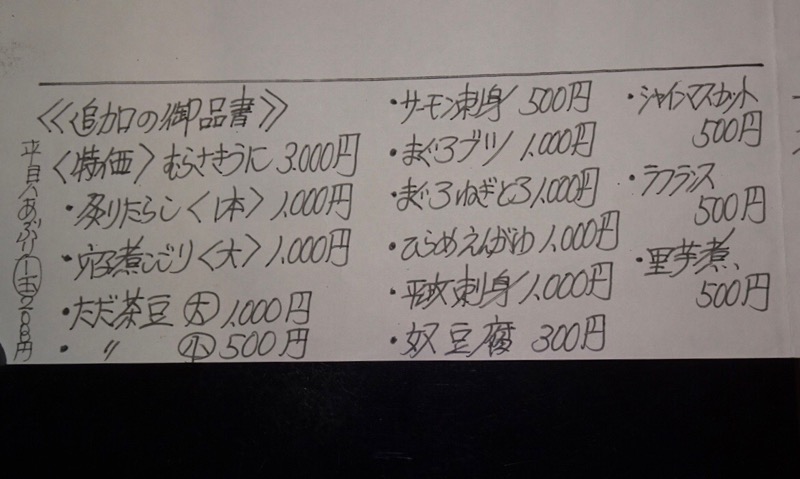 ≪追加の御品書≫
〈特価〉むらさきうに 3.000円
・炙りたらこ〈1本〉1,000円
・穴子煮こごり〈大〉1,000円
・ただ茶豆 大 1,000円
・ 〃 小 500円
・サーモン刺身 500円
・まぐろブツ 1,000円
・まぐろねぎとろ 1,000円
・ひらめえんがわ 1,000円
・平政刺身 1,000円
・奴豆腐 300円
・シャインマスカット
500円
・ラフランス
500円
・里芋煮
500円
平目 あぶり 円